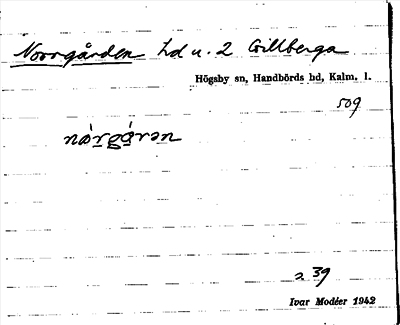 Norrgården hd u. 2 Gillberga
Högsby sn, Handbörds hd, Kalm. l.
509
nòrgɷ́rən
s. 39
Ivar Modéer 1942